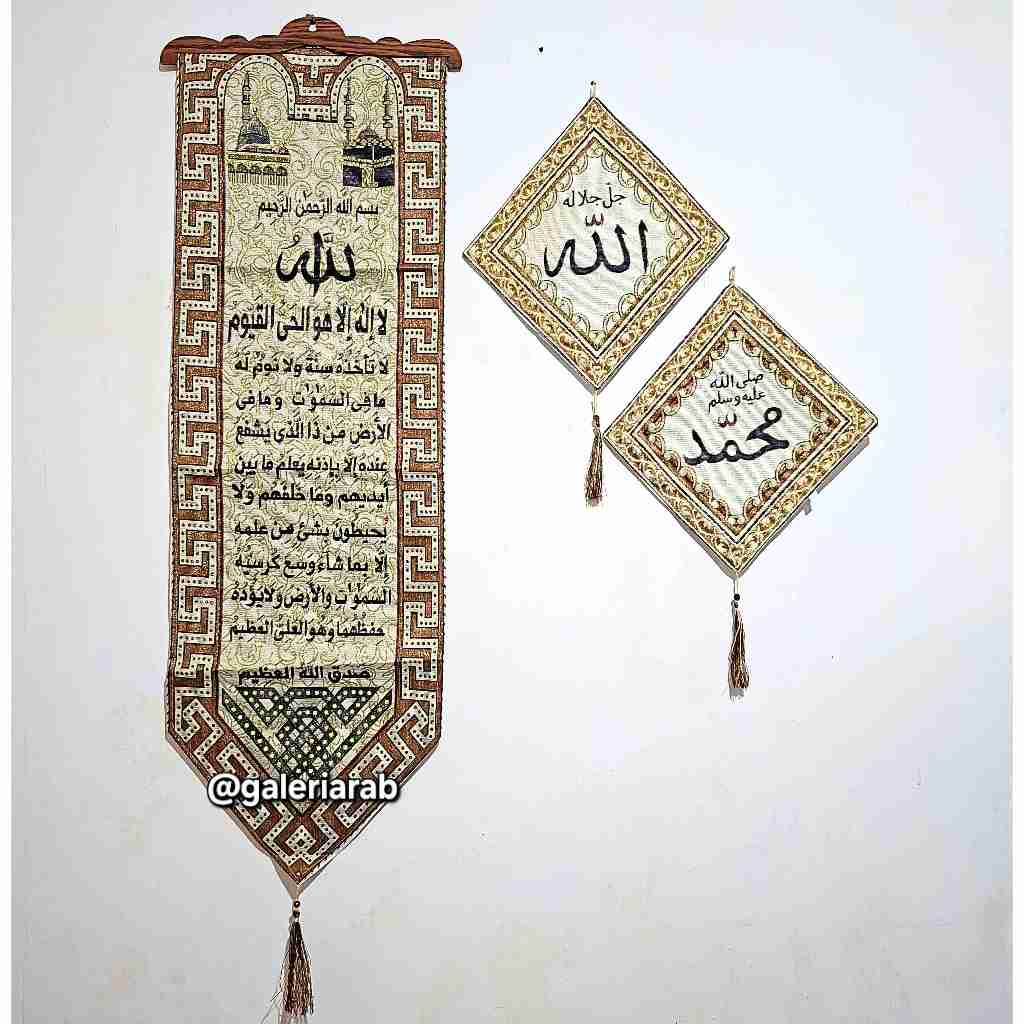 بسم الله الرحمن الرحيم
الله
لا إله إلا هو الحي القيوم
لا تأخذه سنة ولا نوم له
ما في السمٰوٰت وما في
الأرض من ذا الذي يشفع
عنده إلا بإذنه يعلم ما بين
أيديهم وما خلفهم ولا
يحيطون بشئ من علمه
إلا بما شاء وسع كرسيه
السمٰوٰت والأرض ولا يؤده
حفظهما وهو العلي العظيم
صدق الله العظيم
@galeriarab
جل جلا له
الله
صلى الله
عليه وسلم
محمد